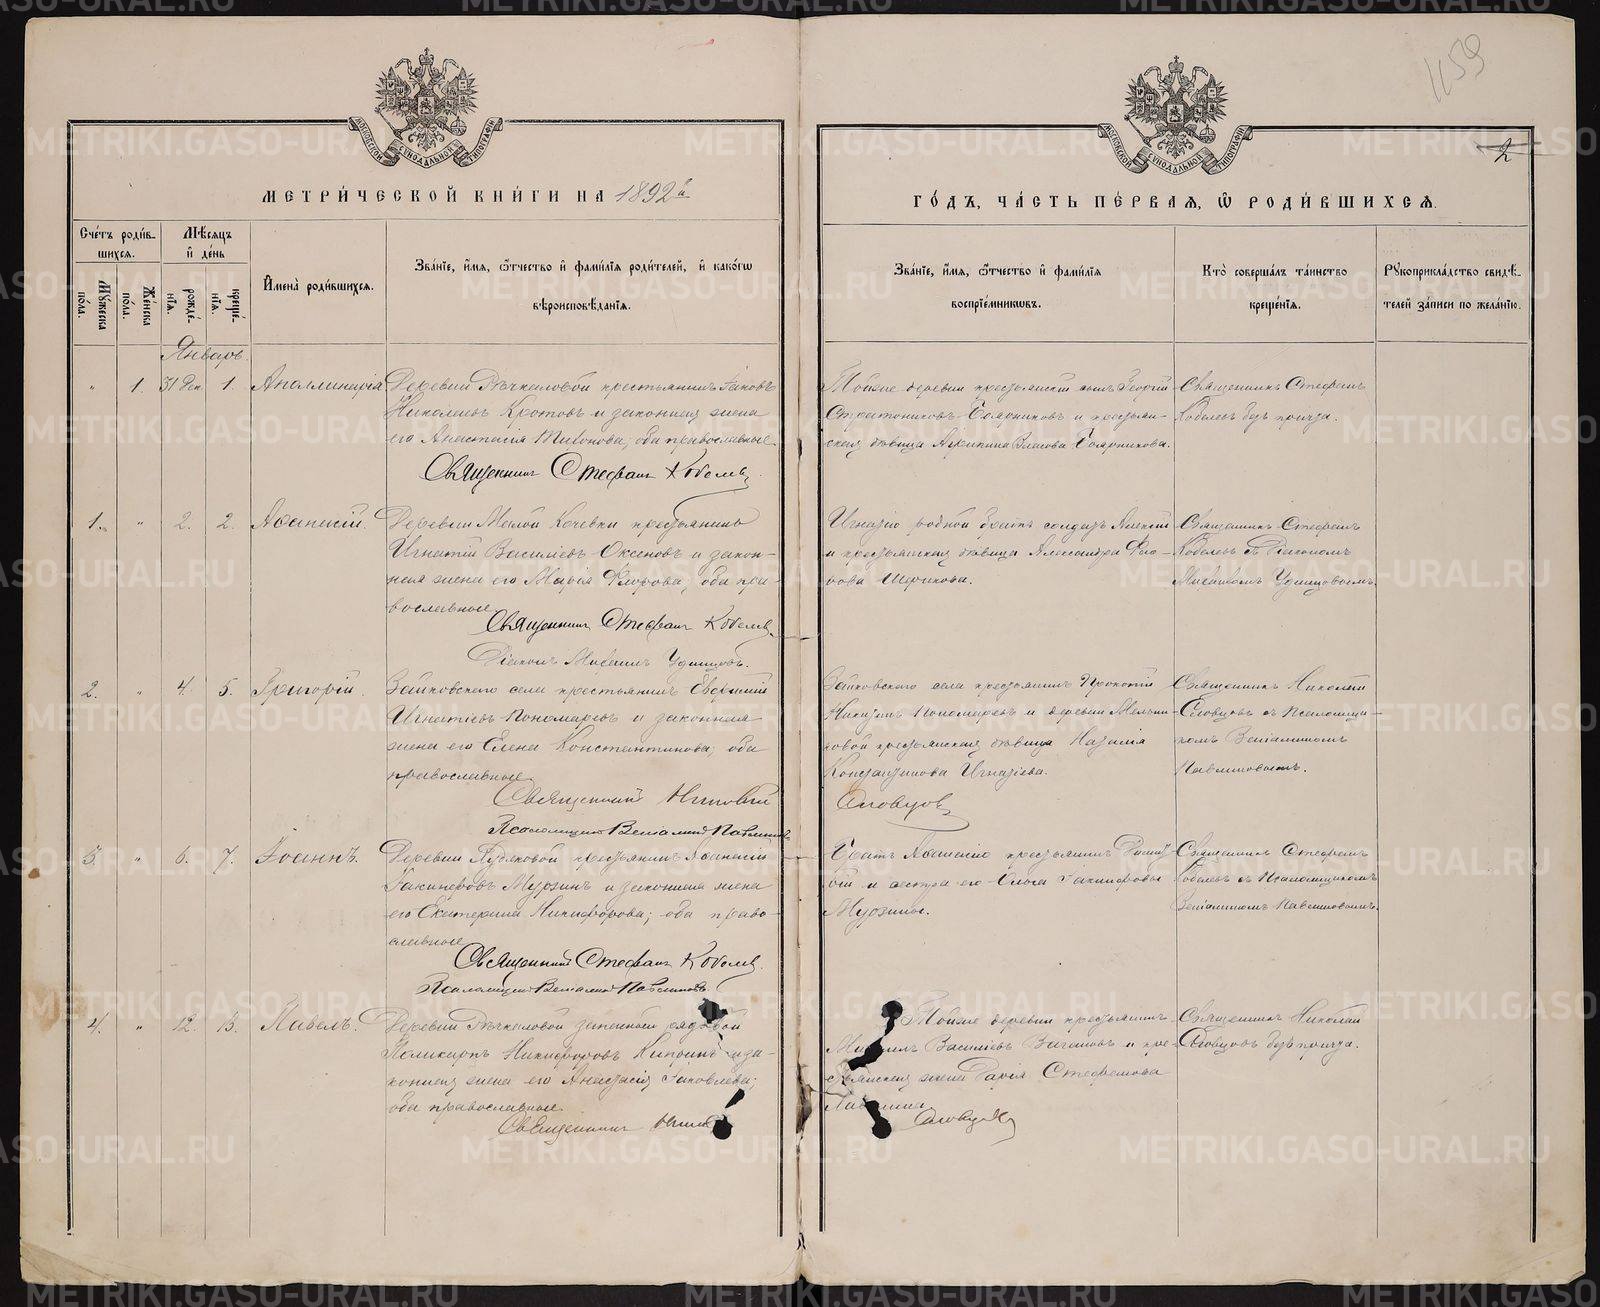 МЕТРИ́ЧЕСКОЙ КНИ́ГИ НА 1892 й
Сче́тъ роди́в-
шихсѧ.
Мѣсѧцъ
и҆ де́нь
Му́жеска по́ла.
Же́нска по́ла.
рожде́-
нїѧ.
креще́-
нїѧ.
И҆мена̀ роди́вшихсѧ.
Зва́нїе, и҆́мѧ, ѻ҆́тчество и҆ фами́лїѧ роди́телей, и҆ како́гѡ
вѣроисповѣ́данїѧ.
Январь.
" 1. 31 Дек. 1. Аполлинарія
Деревни Рѣчкаловой крестьянинъ Іаковъ
Николаевъ Кротовъ и законная жена
его Анастасія Тихонова, оба православные.
Священникъ Стефанъ Кобелевъ
1. " 2. 2. Аѳанасій.
Деревни Малой Кочевки крестьянинъ
Игнатій Василіевъ Оксеновъ и закон-
ная жена его Марія Флорова; оба пра-
вославные.
Священникъ Стефанъ Кобелевъ
Діаконъ Михаилъ Удинцовъ.
2. " 4. 5. Григорій.
Зайковскаго села крестьянинъ Евфимій
Игнатіевъ Пономаревъ и законная
жена его Елена Константинова; оба
православные.
Священникъ Николай
Псаломщикъ Веніаминъ Павлиновъ
3. " 6. 7. Іоаннъ.
Деревни крестьянинъ Аѳанасій
Іакинѳовъ Мурзинъ и законная жена
его Екатерина Никифорова; оба право-
славные.
Священникъ Стефанъ Кобелевъ.
Псаломщикъ Веніаминъ Павлиновъ
4. " 12. 13. Павелъ.
Деревни Рѣчкаловой запасный рядовой
Поликарпъ Никифоровъ и за-
конная жена его Анастасія Іаковлева;
оба православные.
Священникъ Никол
1159
2
ГО́ДЪ, ЧА́СТЬ ПЕ́РВАѦ, Ѡ҆ РОДИ́ВШИХСѦ.
Зва́нїе, и҆́мѧ, ѻ҆́тчество и҆ фами́лїѧ
воспрїе́мникѡвъ.
Кто̀ соверша́лъ та́инство
креще́нїѧ.
Рꙋкоприкла́дство свидѣ́-
телей за́писи по жела́нїю.
Тойже деревни крестьянскій сынъ Георгій
Стратониковъ Боярниковъ и крестьян-
ская дѣвица Агрипина Власова Боярникова.
Священникъ Стефанъ
Кобелевъ безъ причта.
Игнатію родной братъ солдатъ Алексій
и крестьянская дѣвица Александра Фло-
рова
Священникъ Стефанъ
Кобелевъ съ Діакономъ
Михаиломъ Удинцовымъ.
Зайковскаго села крестьянинъ Прокопій
Никитинъ Пономаревъ и деревни Мельни-
ковой крестьянская дѣвица Наталія
Константинова Игнатіева.
Словцовъ
Священникъ Николай
Словцовъ съ Псаломщи-
комъ Веніаминомъ
Павлиновымъ.
Братъ Аѳанасію крестьянинъ Димит-
рій и сестра его Ольга Іакинѳовы
Мурзины.
Священникъ Стефанъ
Кобелевъ съ Псаломщикомъ
Веніаминомъ Павлиновымъ.
Тойже деревни крестьянинъ
Михаилъ Василіевъ Вагановъ и кре-
стьянская жена Дарія Стефанова
Словцовъ
Священникъ Николай
Словцовъ безъ причта.
METRIKI.GASO-URAL.RU